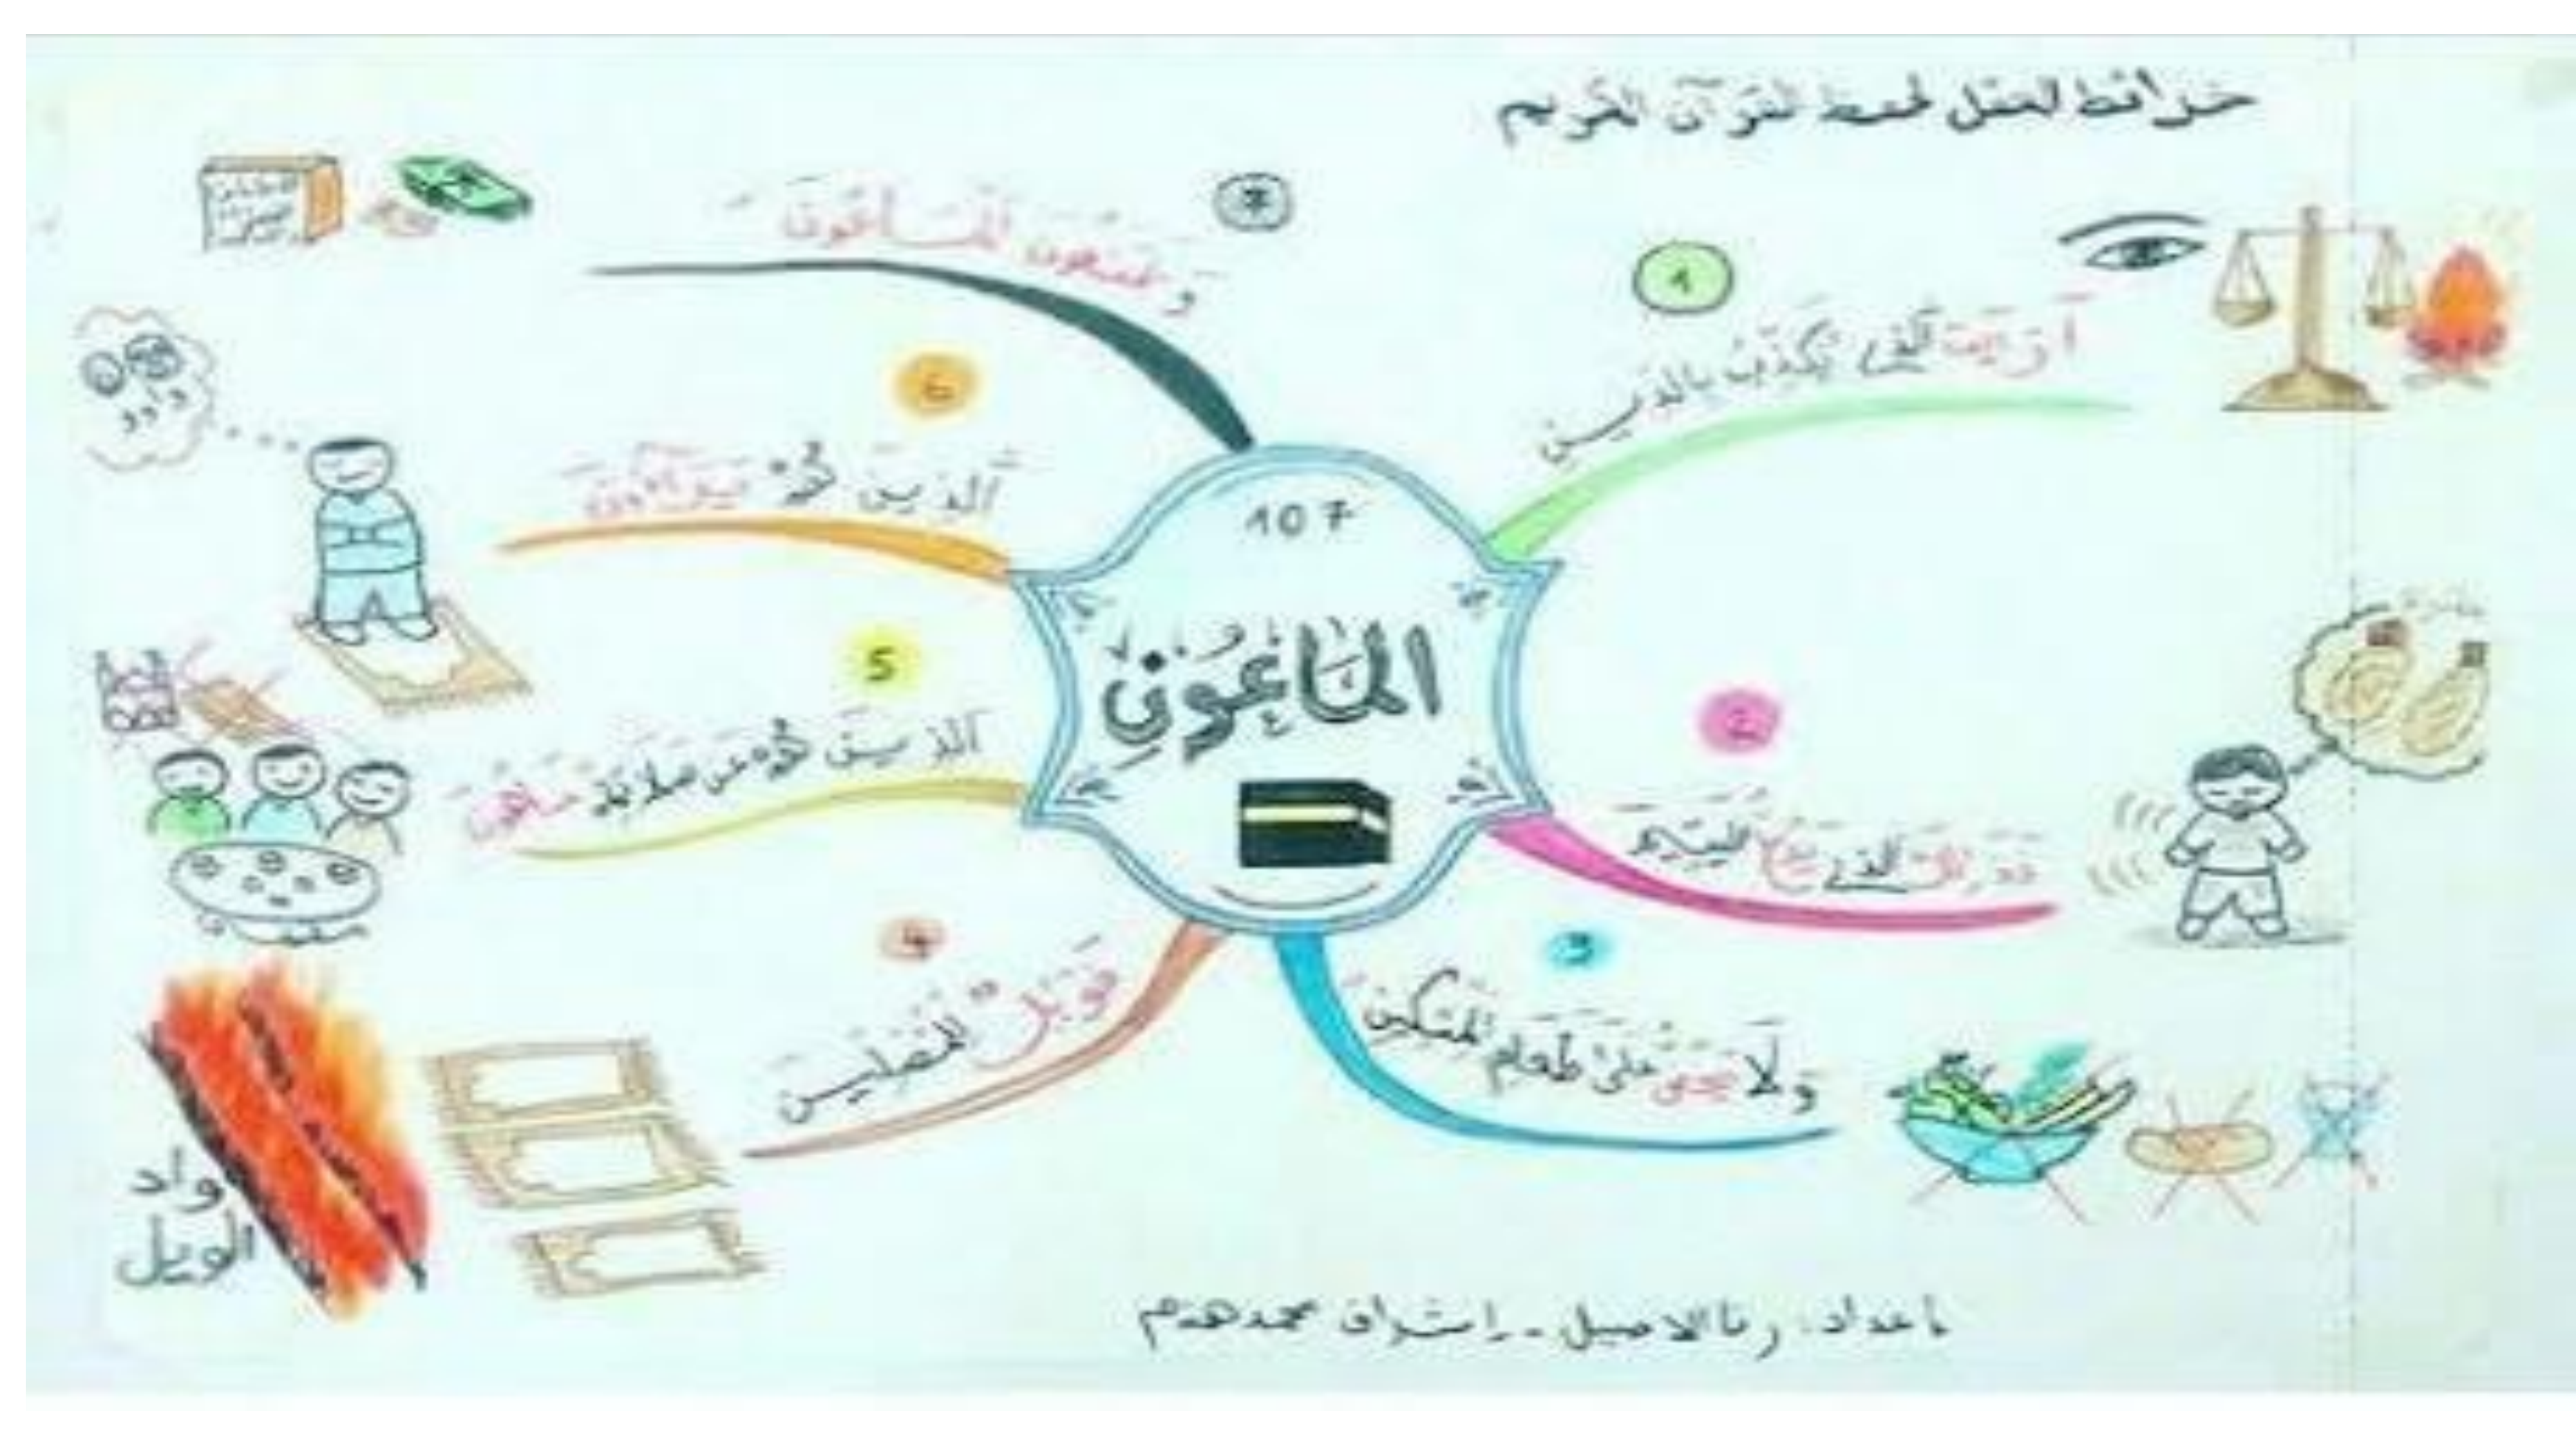 خرائط العقل لحفظ القرآن الكريم
107
المَاعُون
1
أرَيْتَ الَّذِي يُكَذِّبُ بِالدِّينِ
2
الَّذِي يَدُعُّ الْيَتِيمَ
3
وَلَا يَحُضُّ عَلَى طَعَامِ الْمِسْكِينِ
4
فَوَيْلٌ لِلْمُصَلِّينَ
واد
الويل
5
الَّذِينَ هُمْ عَنْ صَلَاتِهِمْ سَاهُونَ
6
الَّذِينَ هُمْ يُرَاءُونَ
7
وَيَمْنَعُونَ الْمَاعُونَ
إعداد: رنا الاصيل - إشراف محمد هدم